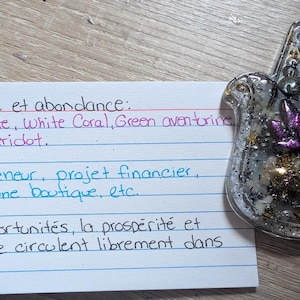 et abondance:
White Coral, Green aventurine
projet financier,
boutique, etc.
la prospérité et
circulent librement dans